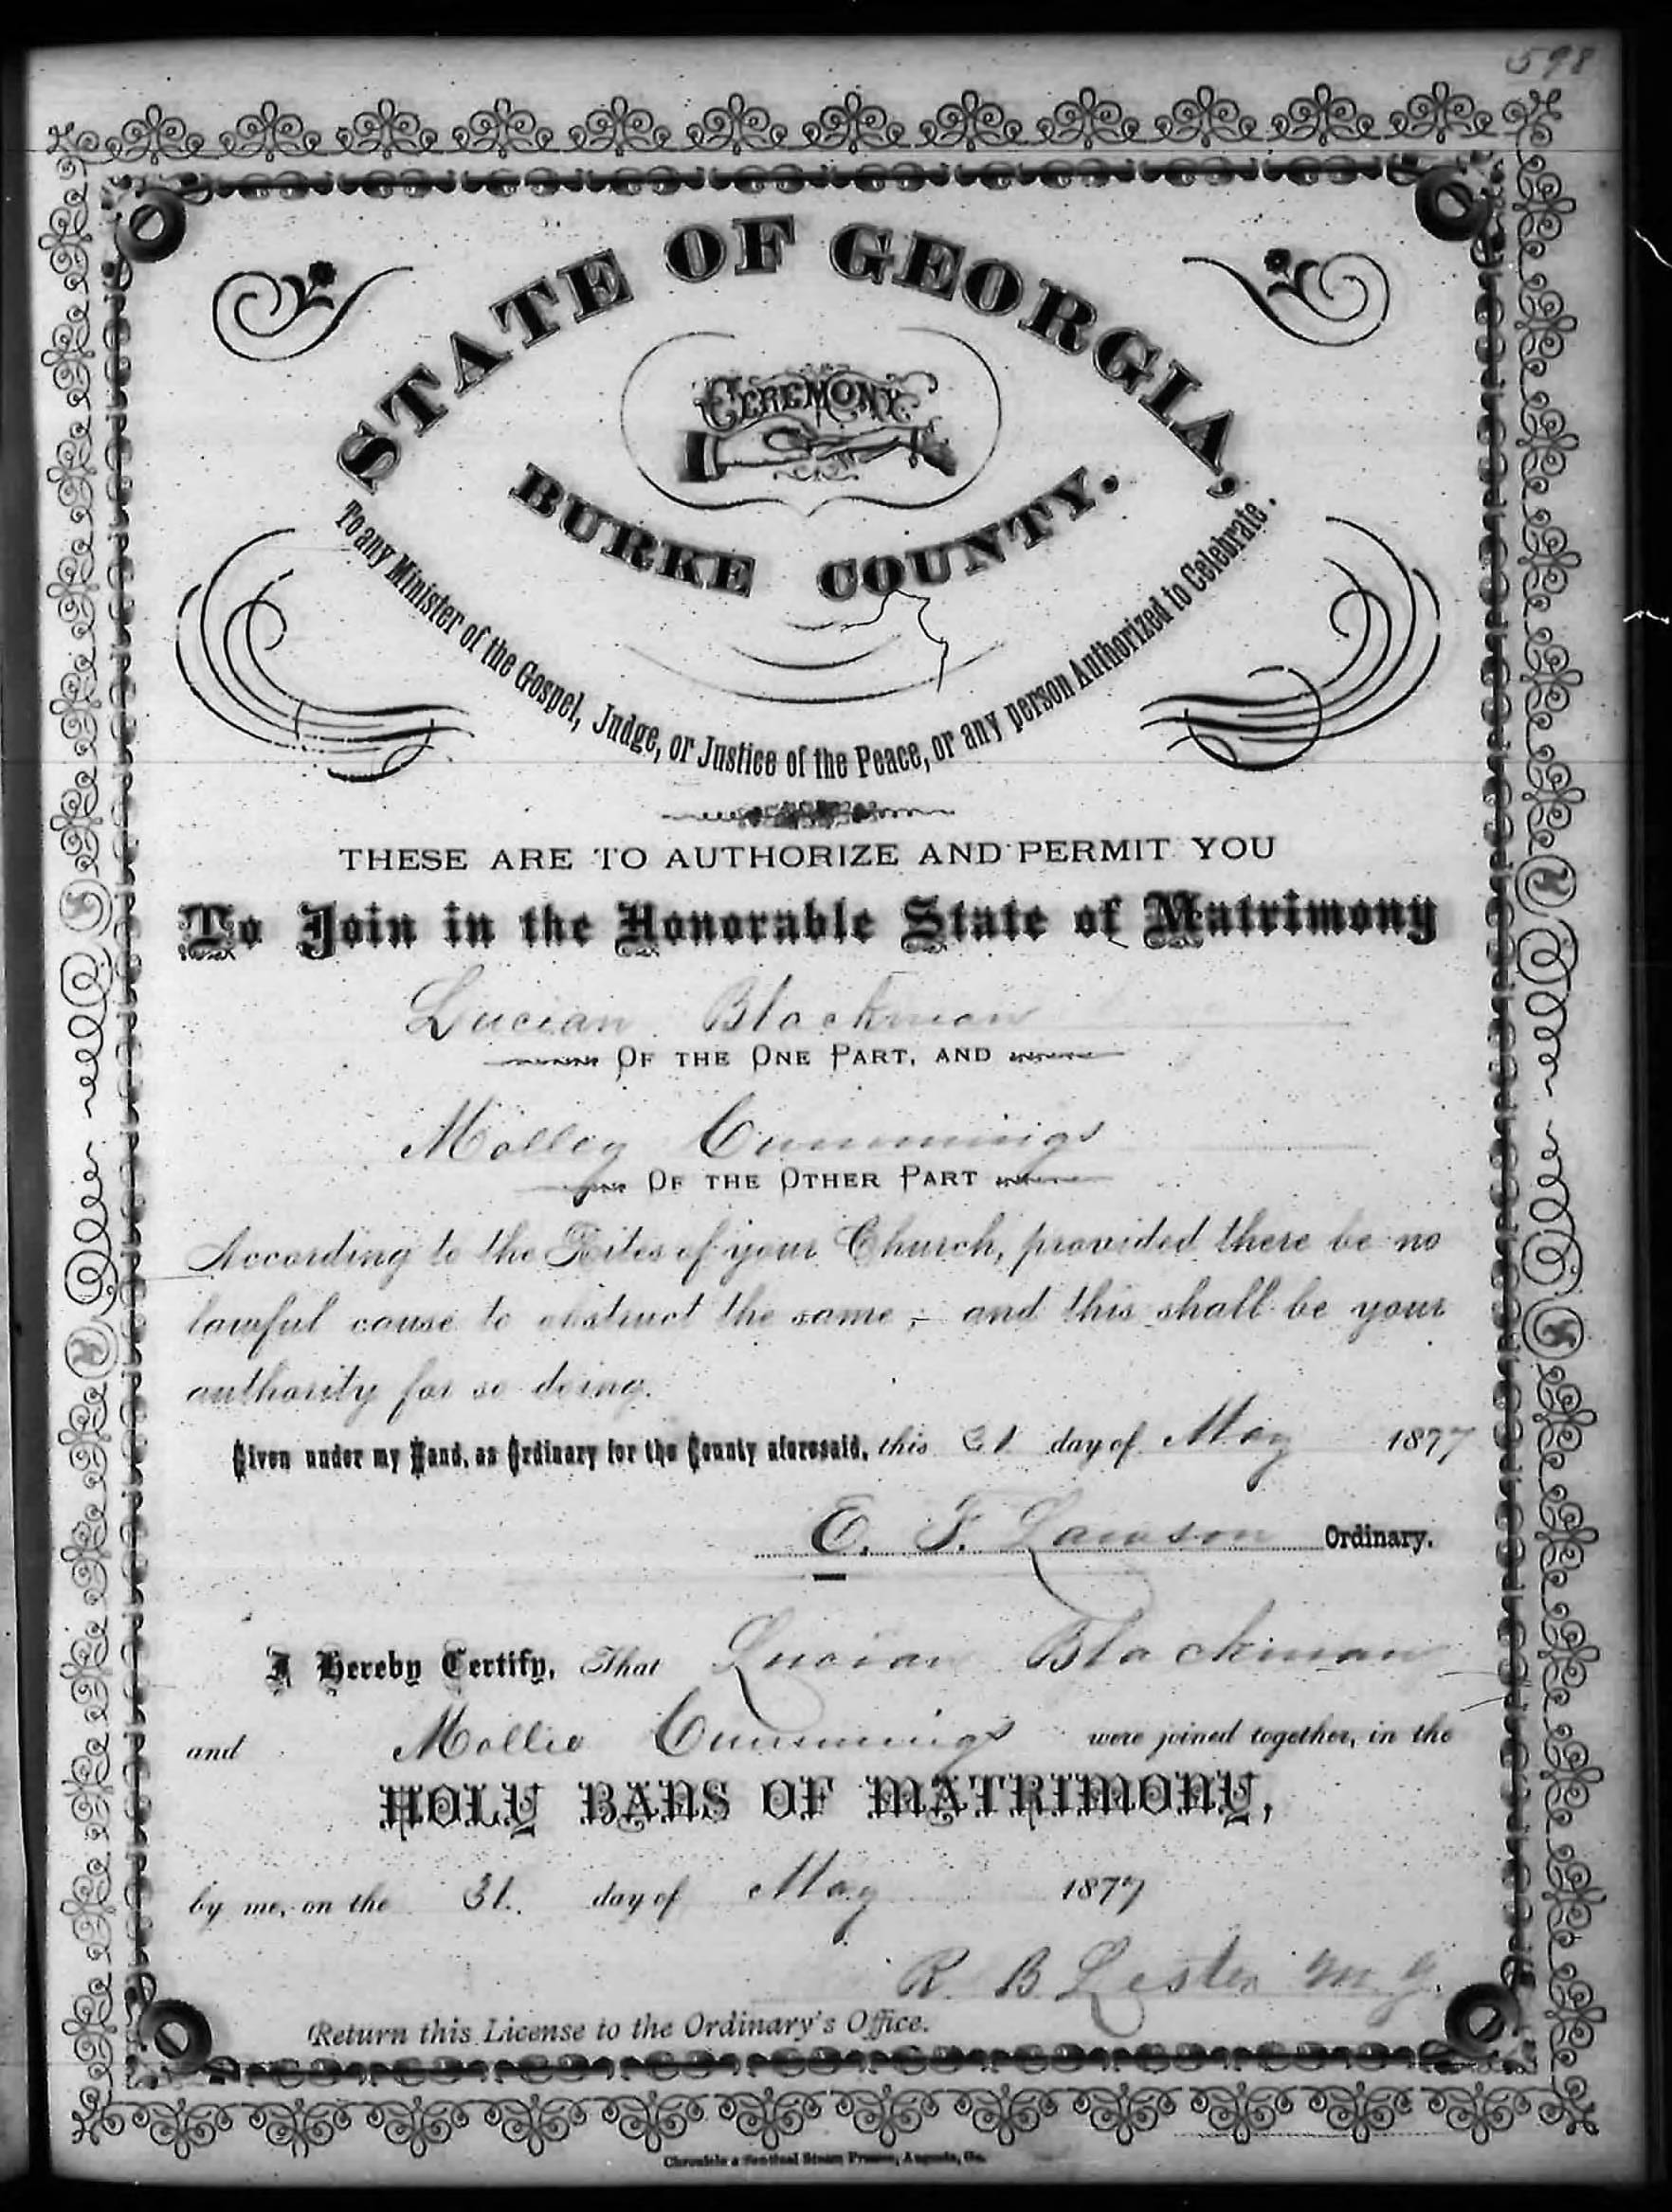 598
STATE OF GEORGIA,
CEREMONY
BURKE COUNTY.
To any Minister of the Gospel, Judge, or Justice of the Peace, or any person Authorized to Celebrate.
THESE ARE TO AUTHORIZE AND PERMIT YOU
To Join in the Honorable State of Matrimony
Lucian Blackman
OF THE ONE PART, AND
Molley Cummings
OF THE OTHER PART
According to the Rites of your Church, provided there be no
lawful cause to obstruct the same; and this shall be your
authority for so doing.
Given under my Hand, as Ordinary for the County aforesaid, this 31 day of May 1877
E. F. Lawson Ordinary.
I Hereby Certify, That Lucian Blackman
and Mollie Cummings were joined together, in the
HOLY BANS OF MATRIMONY,
by me, on the 31. day of May 1877
R. B. Lester M. G.
Return this License to the Ordinary's Office.
Chronicle & Sentinel Steam Presses, Augusta, Ga.